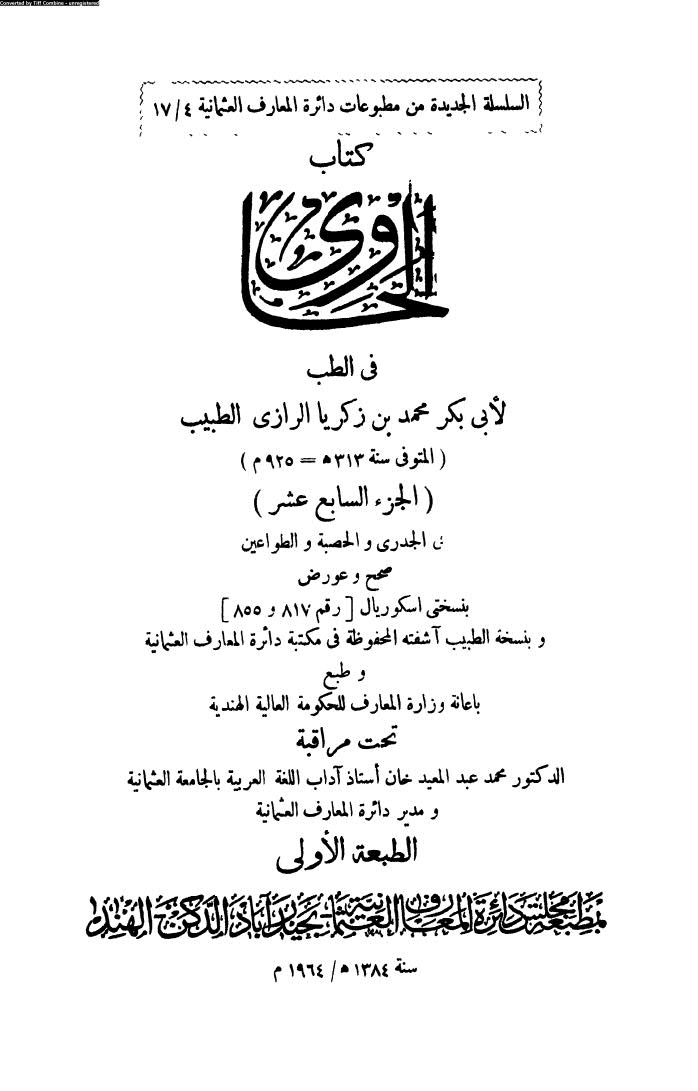 Converted by Tiff Combine - unregistered
السلسلة الجديدة من مطبوعات دائرة المعارف العثمانية ١٧/٤
كتاب
الحاوى
فى الطب
لأبى بكر محمد بن زكريا الرازى الطبيب
( المتوفى سنة ٣١٣ ھ = ٩٢٥ م )
( الجزء السابع عشر )
فى الجدرى و الحصبة و الطواعين
صحح و عورض
بنسختى اسكوريال [ رقم ٨١٧ و ٨٥٥ ]
و بنسخة الطبيب آشفته المحفوظة فى مكتبة دائرة المعارف العثمانية
و طبع
باعانة وزارة المعارف للحكومة العالية الهندية
تحت مراقبة
الدكتور محمد عبد المعيد خان أستاذ آداب اللغة العربية بالجامعة العثمانية
و مدير دائرة المعارف العثمانية
الطبعة الأولى
بمطبعة مجلس دائرة المعارف العثمانية بحيدرآباد الدكن الهند
سنة ١٣٨٤ ھ / ١٩٦٤ م